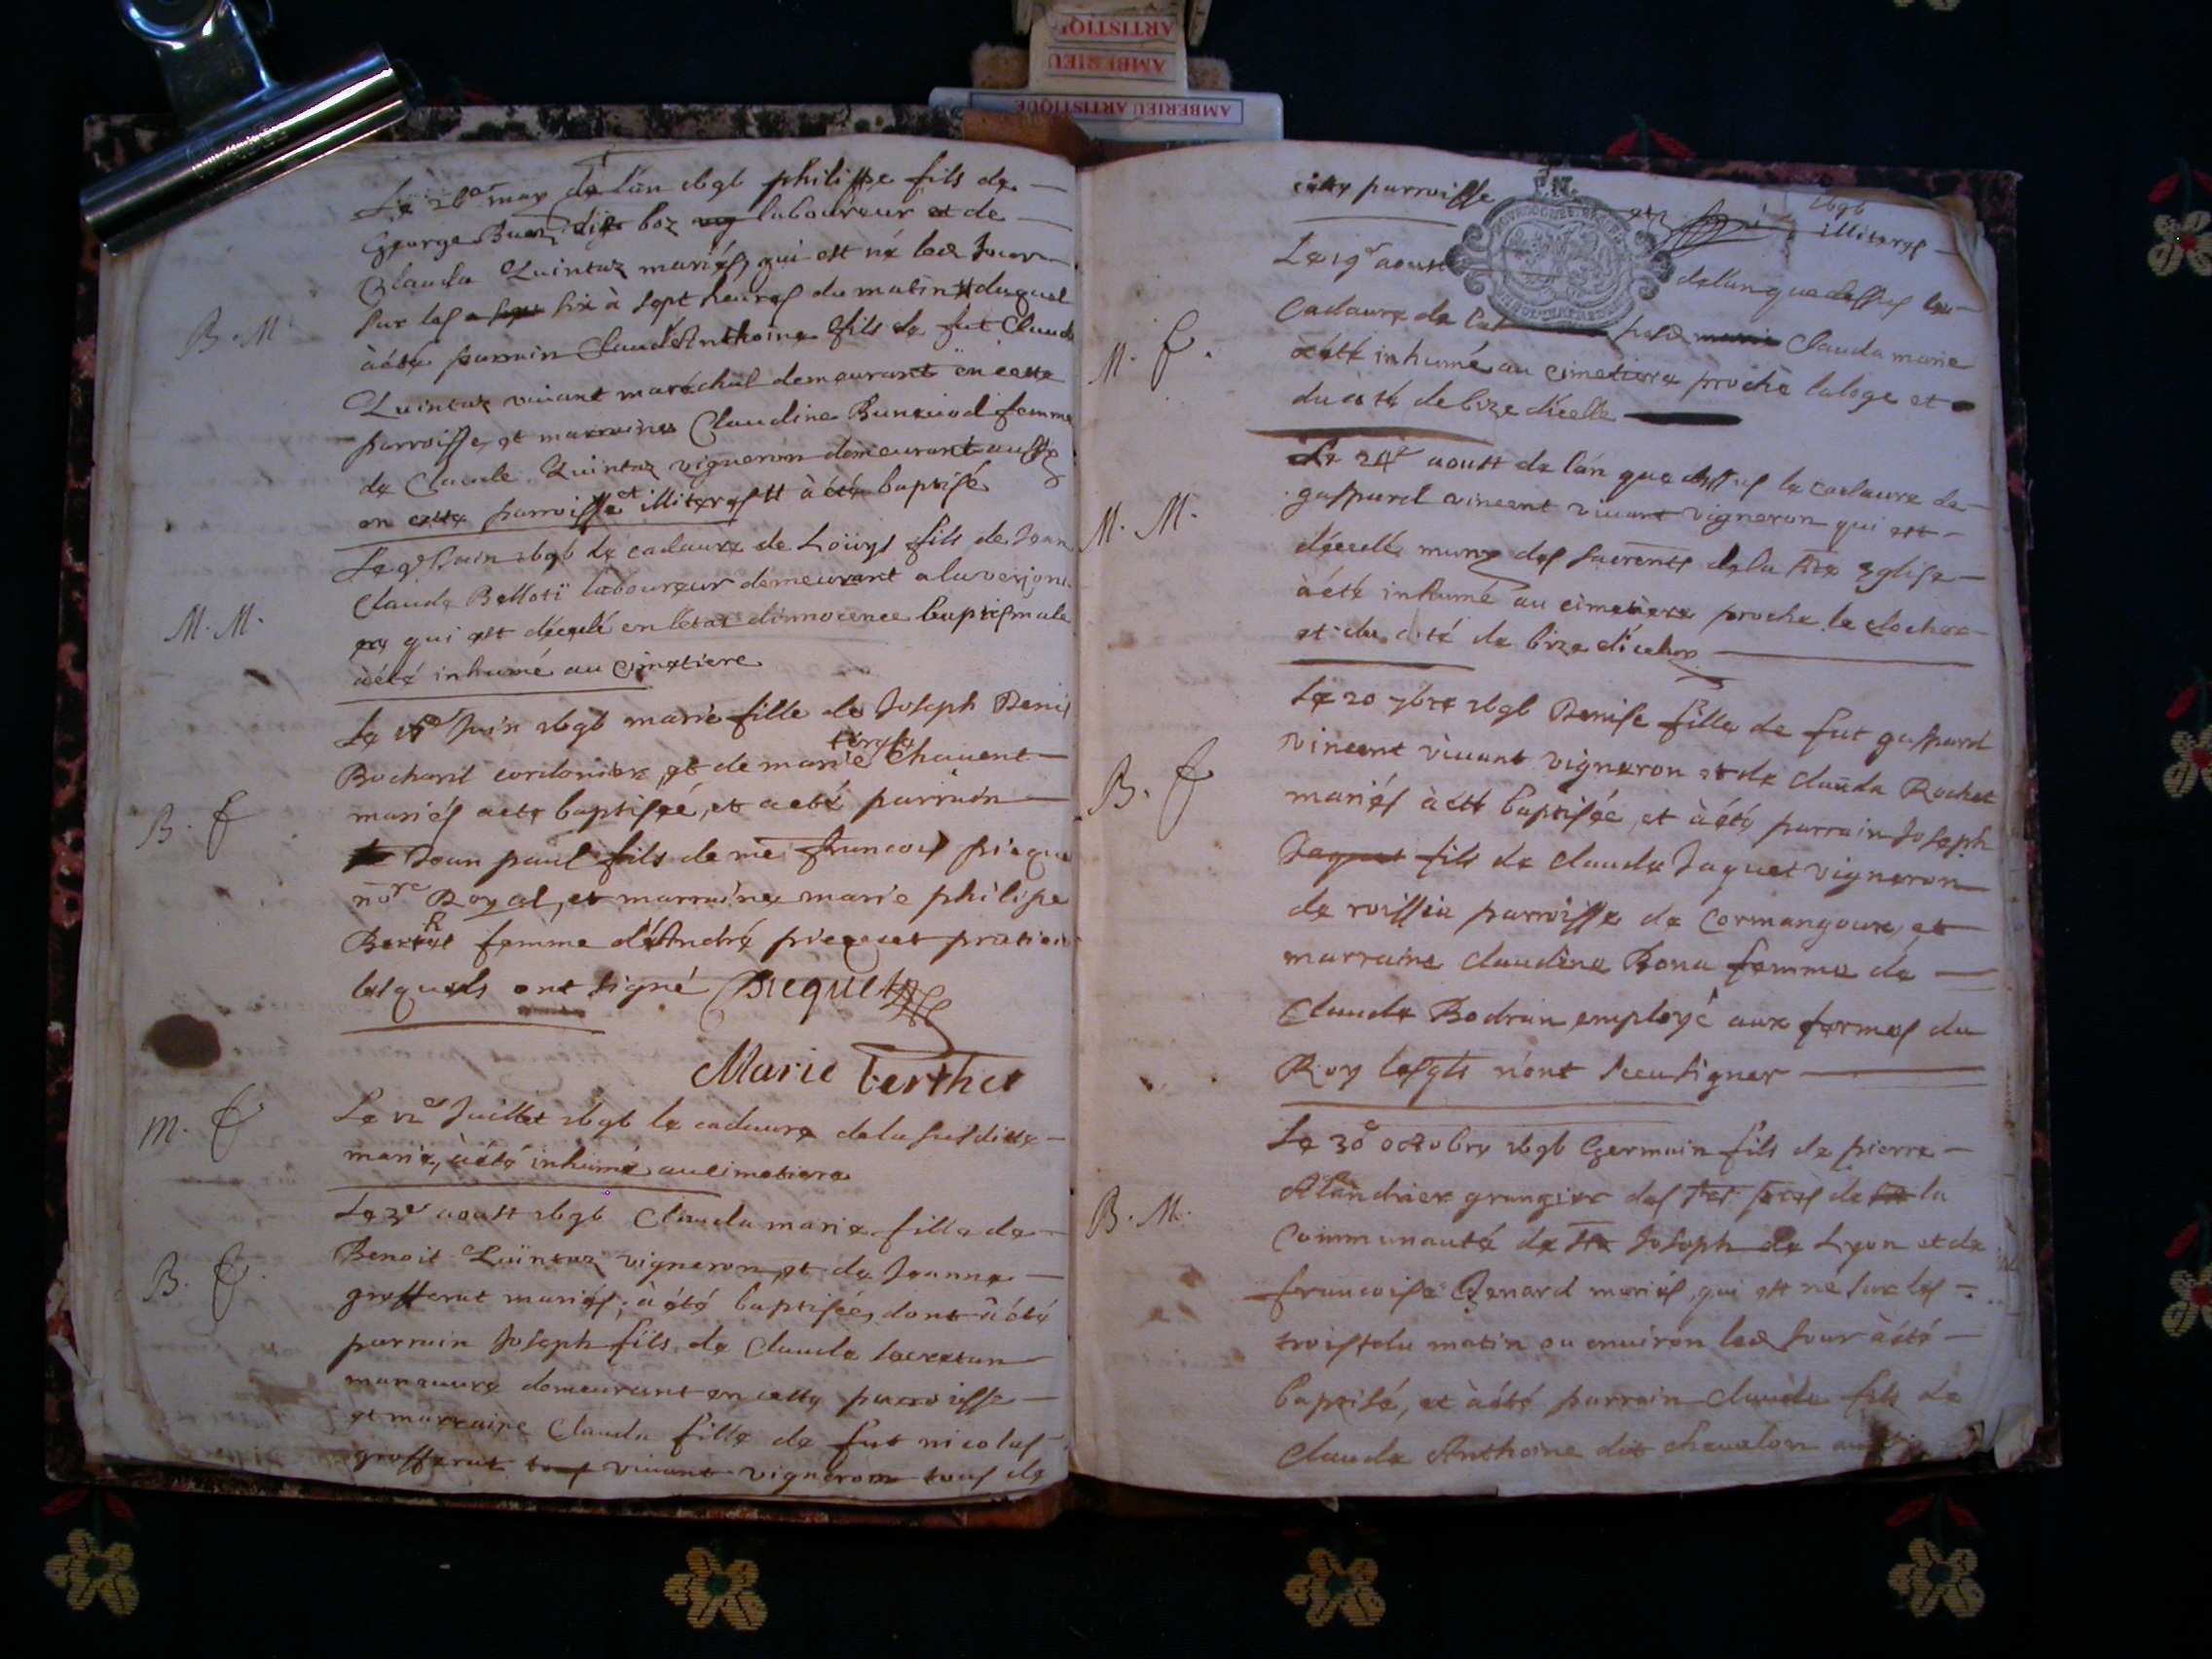 ARTISTIQ
AMBERIEU
AMBERIEU ARTISTIQUE
Le 26e may de lan 1696 philippe fils de
George Buaz dit boz laboureur et de
Clauda Quintaz mariés, qui est né led Jour
sur les six à sept heures du matin duquel
à été parrain Claude Anthoine fils de fut Claude
Quintaz vivant maréchal demeurant en cette
parroisse, et marraine Claudine femme
de Claude Quintaz vigneron demeurant aussy
en cette parroisse et illiterés à été baptisé
B. M.
Le Juin 1696 le cadavre de Loüys fils de Jean
Claude laboureur demeurant a
qui est décedé en l'état d'innocence baptismale
à été inhumé au cimetiere
M. M.
Le Juin 1696 marie fille de Joseph Denis
Bochard cordonier, et de marie Chavent
mariés a eté baptisée, et a eté parrain
Jean paul fils de me francois pieque
nore Royal, et marraine marie philipe
femme d'André praticien
lesquels ont signé Piequet
B. f
Marie berthet
Le 12e Juillet 1696 le cadavre de la susditte
marie, à été inhumé au cimetiere
m. f
Le 3e aoust 1696 Clauda marie fille de
Benoit Quintaz vigneron, et de Jeanne
grosferat mariés, à été baptisée, dont à été
parrain Joseph fils de Claude
manœuvre demeurant en cette parroisse
et marraine Clauda fille de fut nicolas
grosferat vivant vigneron tous de
B. f
cette parroisse et illiterés
1696
Le 19e aoust de lan que dessus le
cadavre de susd Clauda marie
à été inhumé au cimetiere proche la loge et
du coté de bize d'icelle
M. f.
Le 24e aoust de lan que dessus le cadavre de
gaspard vincent vivant vigneron qui est
décedé muny des sacrents de la ste Eglise
à été inhumé au cimetiere proche le clocher
et du coté de bize d'iceluy
M. M.
Le 20 7bre 1696 Denise fille de fut gaspard
vincent vivant vigneron et de clauda Rochet
mariés à été baptisée, et à été parrain Joseph
Jaquet fils de claude Jaquet vigneron
de roissia parroisse de Cormangoux, et
marraine Claudine Bona femme de
Claude Bodran employé aux fermes du
Roy lesqls n'ont sceu signer
B. f
Le 30e octobre 1696 Germain fils de pierre
grangier des de la
Communauté de St Joseph de Lyon et de
francoise Renard mariés, qui est né sur les
trois du matin ou environ led Jour à été
baptisé, et à été parrain Claude fils de
Claude Anthoine dit chevalon
B. M.